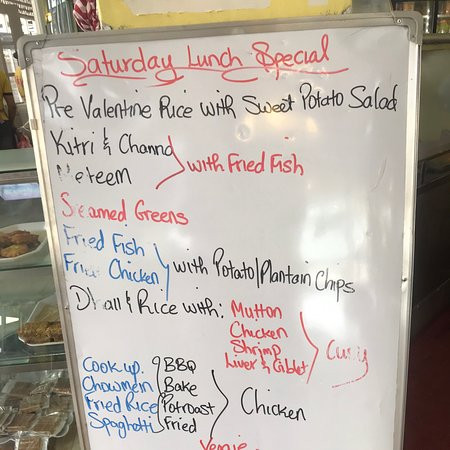 Saturday Lunch Special
Pre Valentine Rice with Sweet Potato Salad
Kitri & Channa
Meteem
with Fried Fish
Steamed Greens
Fried Fish
Fried Chicken
with Potato/Plantain Chips
Dhall & Rice with:
Mutton
Chicken
Shrimp
Liver & Giblet
Curry
Cook up
Chowmein
Fried Rice
Spaghetti
BBQ
Bake
Potroast
Fried
Chicken
Veggie